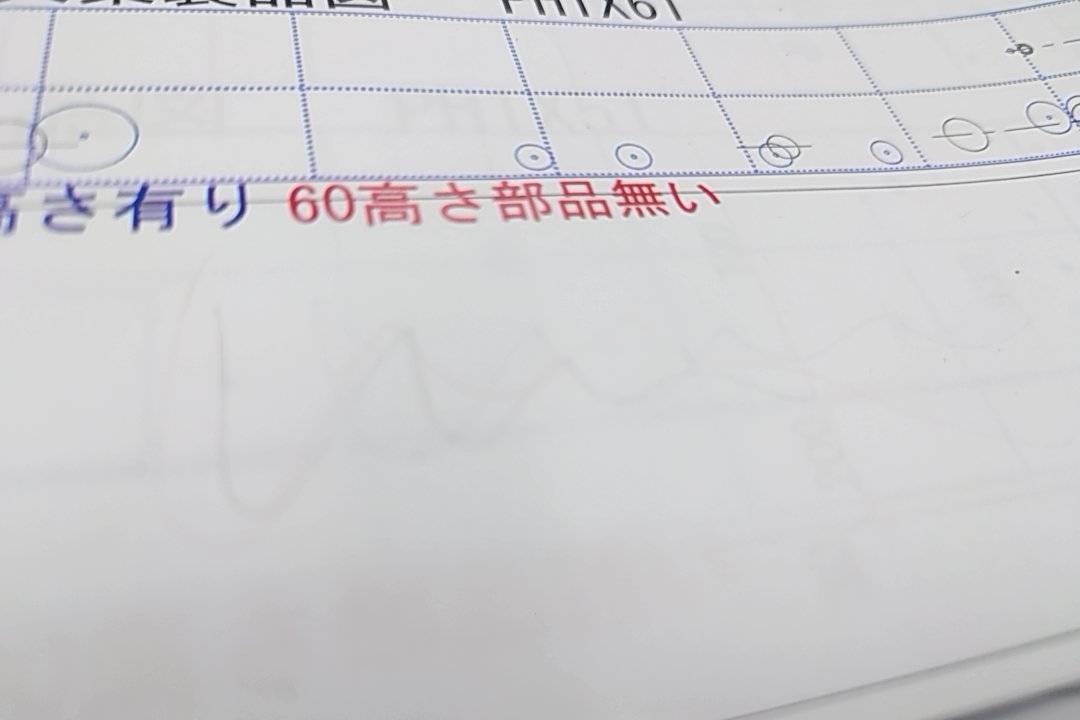 製品図 PHTX61
高さ有り 60高さ部品無い